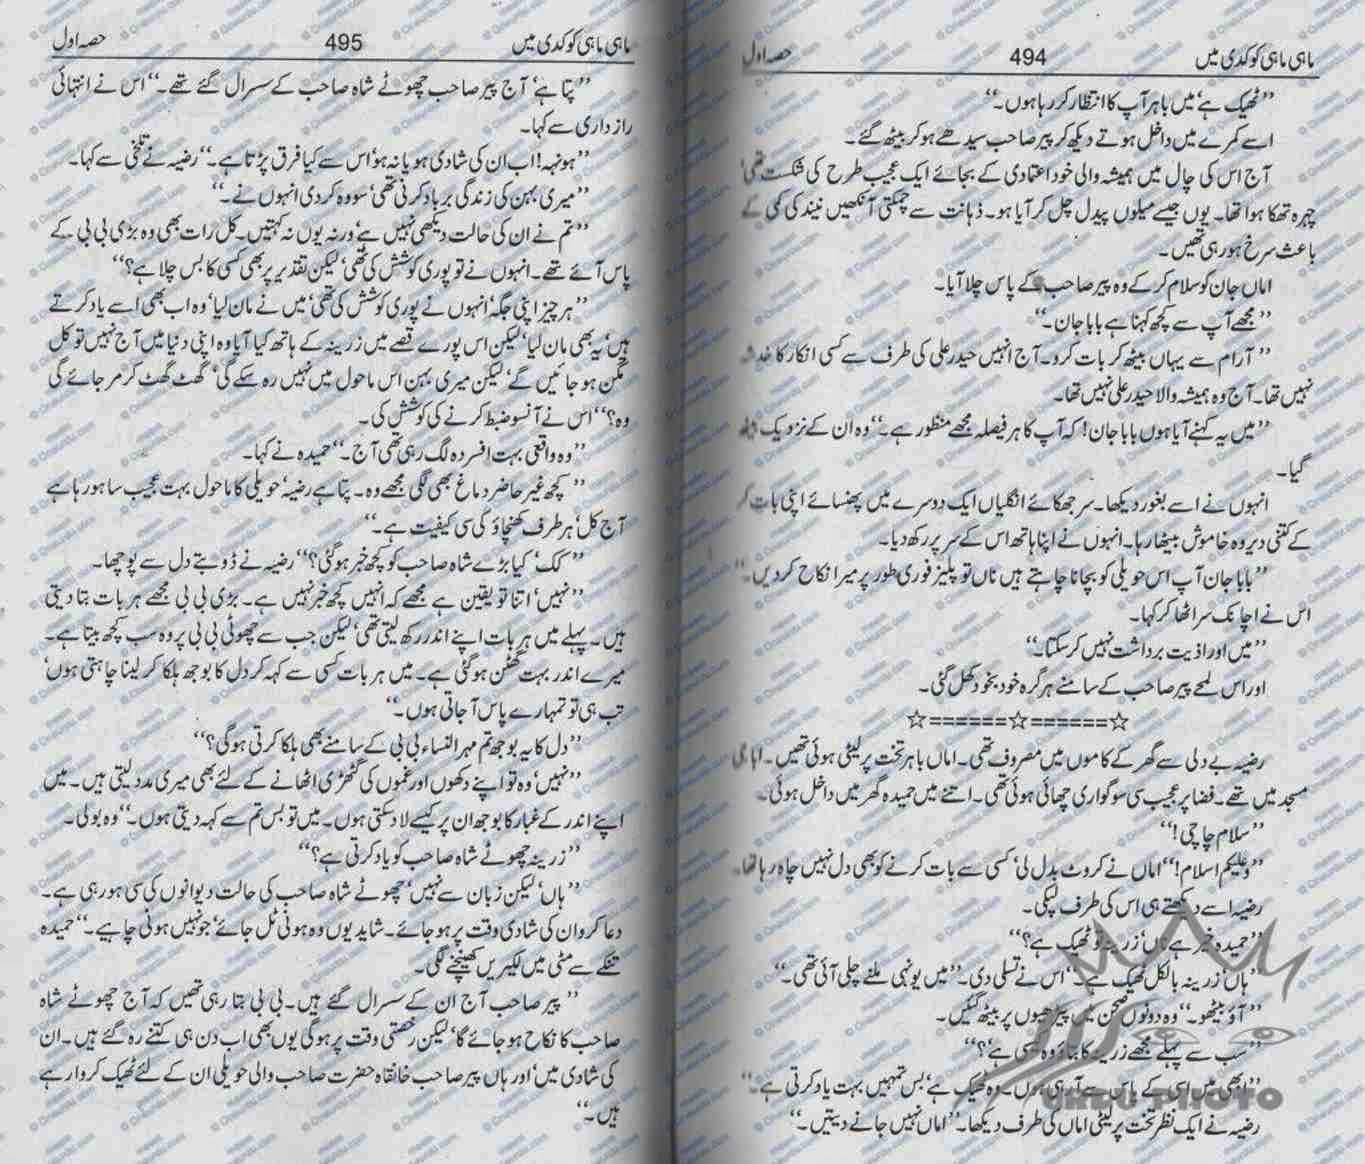 ماہی ماہی کوکدی میں 494 حصہ اول
’’ٹھیک ہے‘ میں باہر آپ کا انتظار کر رہا ہوں۔‘‘
اسے کمرے میں داخل ہوتے دیکھ کر پیر صاحب سیدھے ہو کر بیٹھ گئے۔
آج اس کی چال میں ہمیشہ والی خود اعتمادی کے بجائے ایک عجیب طرح کی شکست تھی‘
چہرہ تھکا ہوا تھا۔ یوں جیسے میلوں پیدل چل کر آیا ہو۔ ذہانت سے چمکتی آنکھیں نیند کی کمی کے
باعث سرخ ہو رہی تھیں۔
اماں جان کو سلام کر کے وہ پیر صاحب کے پاس چلا آیا۔
’’مجھے آپ سے کچھ کہنا ہے بابا جان۔‘‘
’’آرام سے یہاں بیٹھ کر بات کرو۔ آج انہیں حیدر علی کی طرف سے کسی انکار کا خدشہ
نہیں تھا۔ آج وہ ہمیشہ والا حیدر علی نہیں تھا۔
’’میں یہ کہنے آیا ہوں بابا جان! کہ آپ کا ہر فیصلہ مجھے منظور ہے۔‘‘ وہ ان کے نزدیک بیٹھ
گیا۔
انہوں نے اسے بغور دیکھا۔ سر جھکائے انگلیاں ایک دوسرے میں پھنسائے اپنی بات کر
کے کتنی دیر وہ خاموش بیٹھا رہا۔ انہوں نے اپنا ہاتھ اس کے سر پر رکھ دیا۔
’’بابا جان آپ اس حویلی کو بچانا چاہتے ہیں ناں تو پلیز فوری طور پر میرا نکاح کر دیں۔‘‘
اس نے اچانک سر اٹھا کر کہا۔
’’میں اور اذیت برداشت نہیں کر سکتا۔‘‘
اور اس لمحے پیر صاحب کے سامنے ہر گرہ خود بخود کھل گئی۔
☆======☆======☆
رضیہ بے دلی سے گھر کے کاموں میں مصروف تھی۔ اماں باہر تخت پر لیٹی ہوئی تھیں۔ ابا جی
مسجد میں تھے۔ فضا پر عجیب سی سوگواری چھائی ہوئی تھی۔ اتنے میں حمیدہ گھر میں داخل ہوئی۔
’’سلام چاچی!‘‘
’’وعلیکم اسلام!‘‘ اماں نے کروٹ بدل لی‘ کسی سے بات کرنے کو بھی دل نہیں چاہ رہا تھا۔
رضیہ اسے دیکھتے ہی اس کی طرف لپکی۔
’’حمیدہ خیر ہے ناں‘ زرینہ تو ٹھیک ہے؟‘‘
’’ہاں‘ زرینہ بالکل ٹھیک ہے۔‘‘ اس نے تسلی دی۔ ’’میں یونہی ملنے چلی آئی تھی۔‘‘
’’آؤ بیٹھو۔‘‘ وہ دونوں صحن میں پیڑھیوں پر بیٹھ گئیں۔
’’سب سے پہلے مجھے زرینہ کا بتاؤ وہ کیسی ہے؟‘‘
’’ابھی میں اسی کے پاس سے آ رہی ہوں۔ وہ ٹھیک ہے‘ بس تمہیں بہت یاد کرتی ہے۔‘‘
رضیہ نے ایک نظر تخت پر لیٹی اماں کی طرف دیکھا۔ ’’اماں نہیں جانے دیتیں۔‘‘
URDU PHOTO
ماہی ماہی کوکدی میں 495 حصہ اول
’’پتا ہے‘ آج پیر صاحب چھوٹے شاہ صاحب کے سسرال گئے تھے۔‘‘ اس نے انتہائی
راز داری سے کہا۔
’’ہونہہ! اب ان کی شادی ہو یا نہ ہو‘ اس سے کیا فرق پڑتا ہے۔‘‘ رضیہ نے تلخی سے کہا۔
’’میری بہن کی زندگی برباد کرنی تھی‘ سو وہ کر دی انہوں نے۔‘‘
’’تم نے ان کی حالت دیکھی نہیں ہے‘ ورنہ یوں نہ کہتیں۔ کل رات بھی وہ بڑی بی بی کے
پاس آئے تھے۔ انہوں نے تو پوری کوشش کی تھی‘ لیکن تقدیر پر بھی کسی کا بس چلا ہے؟‘‘
’’ہر چیز اپنی جگہ‘ انہوں نے پوری کوشش کی تھی‘ میں نے مان لیا‘ وہ اب بھی اسے یاد کرتے
ہیں‘ یہ بھی مان لیا‘ لیکن اس پورے قصے میں زرینہ کے ہاتھ کیا آیا وہ اپنی دنیا میں آج نہیں تو کل
مگن ہو جائیں گے‘ لیکن میری بہن اس ماحول میں نہیں رہ سکے گی‘ گھٹ گھٹ کر مر جائے گی
وہ؟‘‘ اس نے آنسو ضبط کرنے کی کوشش کی۔
’’وہ واقعی بہت افسردہ لگ رہی تھی آج۔‘‘ حمیدہ نے کہا۔
’’کچھ غیر حاضر دماغ بھی لگی مجھے وہ۔ پتا ہے رضیہ‘ حویلی کا ماحول بہت عجیب سا ہو رہا ہے
آج کل‘ ہر طرف کھنچاؤ کی سی کیفیت ہے۔‘‘
’’کک‘ کیا بڑے شاہ صاحب کو کچھ خبر ہو گئی؟‘‘ رضیہ نے ڈوبتے دل سے پوچھا۔
’’نہیں‘ اتنا تو یقین ہے مجھے کہ انہیں کچھ خبر نہیں ہے۔ بڑی بی بی مجھے ہر بات بتا دیتی
ہیں۔ پہلے میں ہر بات اپنے اندر رکھ لیتی تھی‘ لیکن جب سے چھوٹی بی بی پر وہ سب کچھ بیتا ہے۔
میرے اندر بہت گھٹن ہو گئی ہے۔ میں ہر بات کسی سے کہہ کر دل کا بوجھ ہلکا کر لینا چاہتی ہوں‘
تب ہی تو تمہارے پاس آ جاتی ہوں۔‘‘
’’دل کا یہ بوجھ تم مہر النساء بی بی کے سامنے بھی ہلکا کرتی ہو گی؟‘‘
’’نہیں‘ وہ تو اپنے دکھوں اور غموں کی گٹھڑی اٹھانے کے لئے بھی میری مدد لیتی ہیں۔ میں
اپنے اندر کے غبار کا بوجھ ان پر کیسے لاد سکتی ہوں۔ میں تو بس تم سے کہہ دیتی ہوں۔‘‘ وہ بولی۔
’’زرینہ چھوٹے شاہ صاحب کو یاد کرتی ہے؟‘‘
’’ہاں‘ لیکن زبان سے نہیں‘ چھوٹے شاہ صاحب کی حالت دیوانوں کی سی ہو رہی ہے۔
دعا کرو ان کی شادی وقت پر ہو جائے۔ شاید یوں وہ ہونی ٹل جائے‘ جو نہیں ہونی چاہیے۔‘‘ حمیدہ
تنکے سے مٹی میں لکیریں کھینچنے لگی۔
’’پیر صاحب آج ان کے سسرال گئے ہیں۔ بی بی بتا رہی تھیں کہ آج چھوٹے شاہ
صاحب کا نکاح ہو جائے گا‘ لیکن رخصتی وقت پر ہو گی یوں بھی اب دن ہی کتنے رہ گئے ہیں۔ ان
کی شادی میں‘ اور ہاں پیر صاحب خانقاہ حضرت صاحب والی حویلی ان کے لئے ٹھیک کروا رہے
ہیں۔‘‘